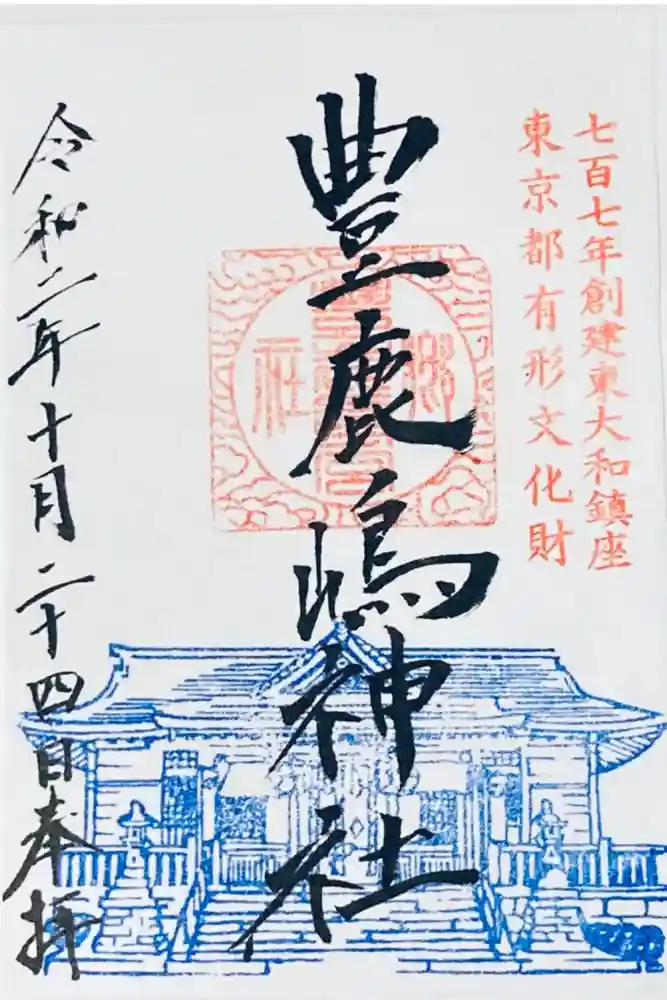 七百七年創建東大和鎮座
東京都有形文化財
豊鹿嶋神社
令和二年十月二十四日奉拝